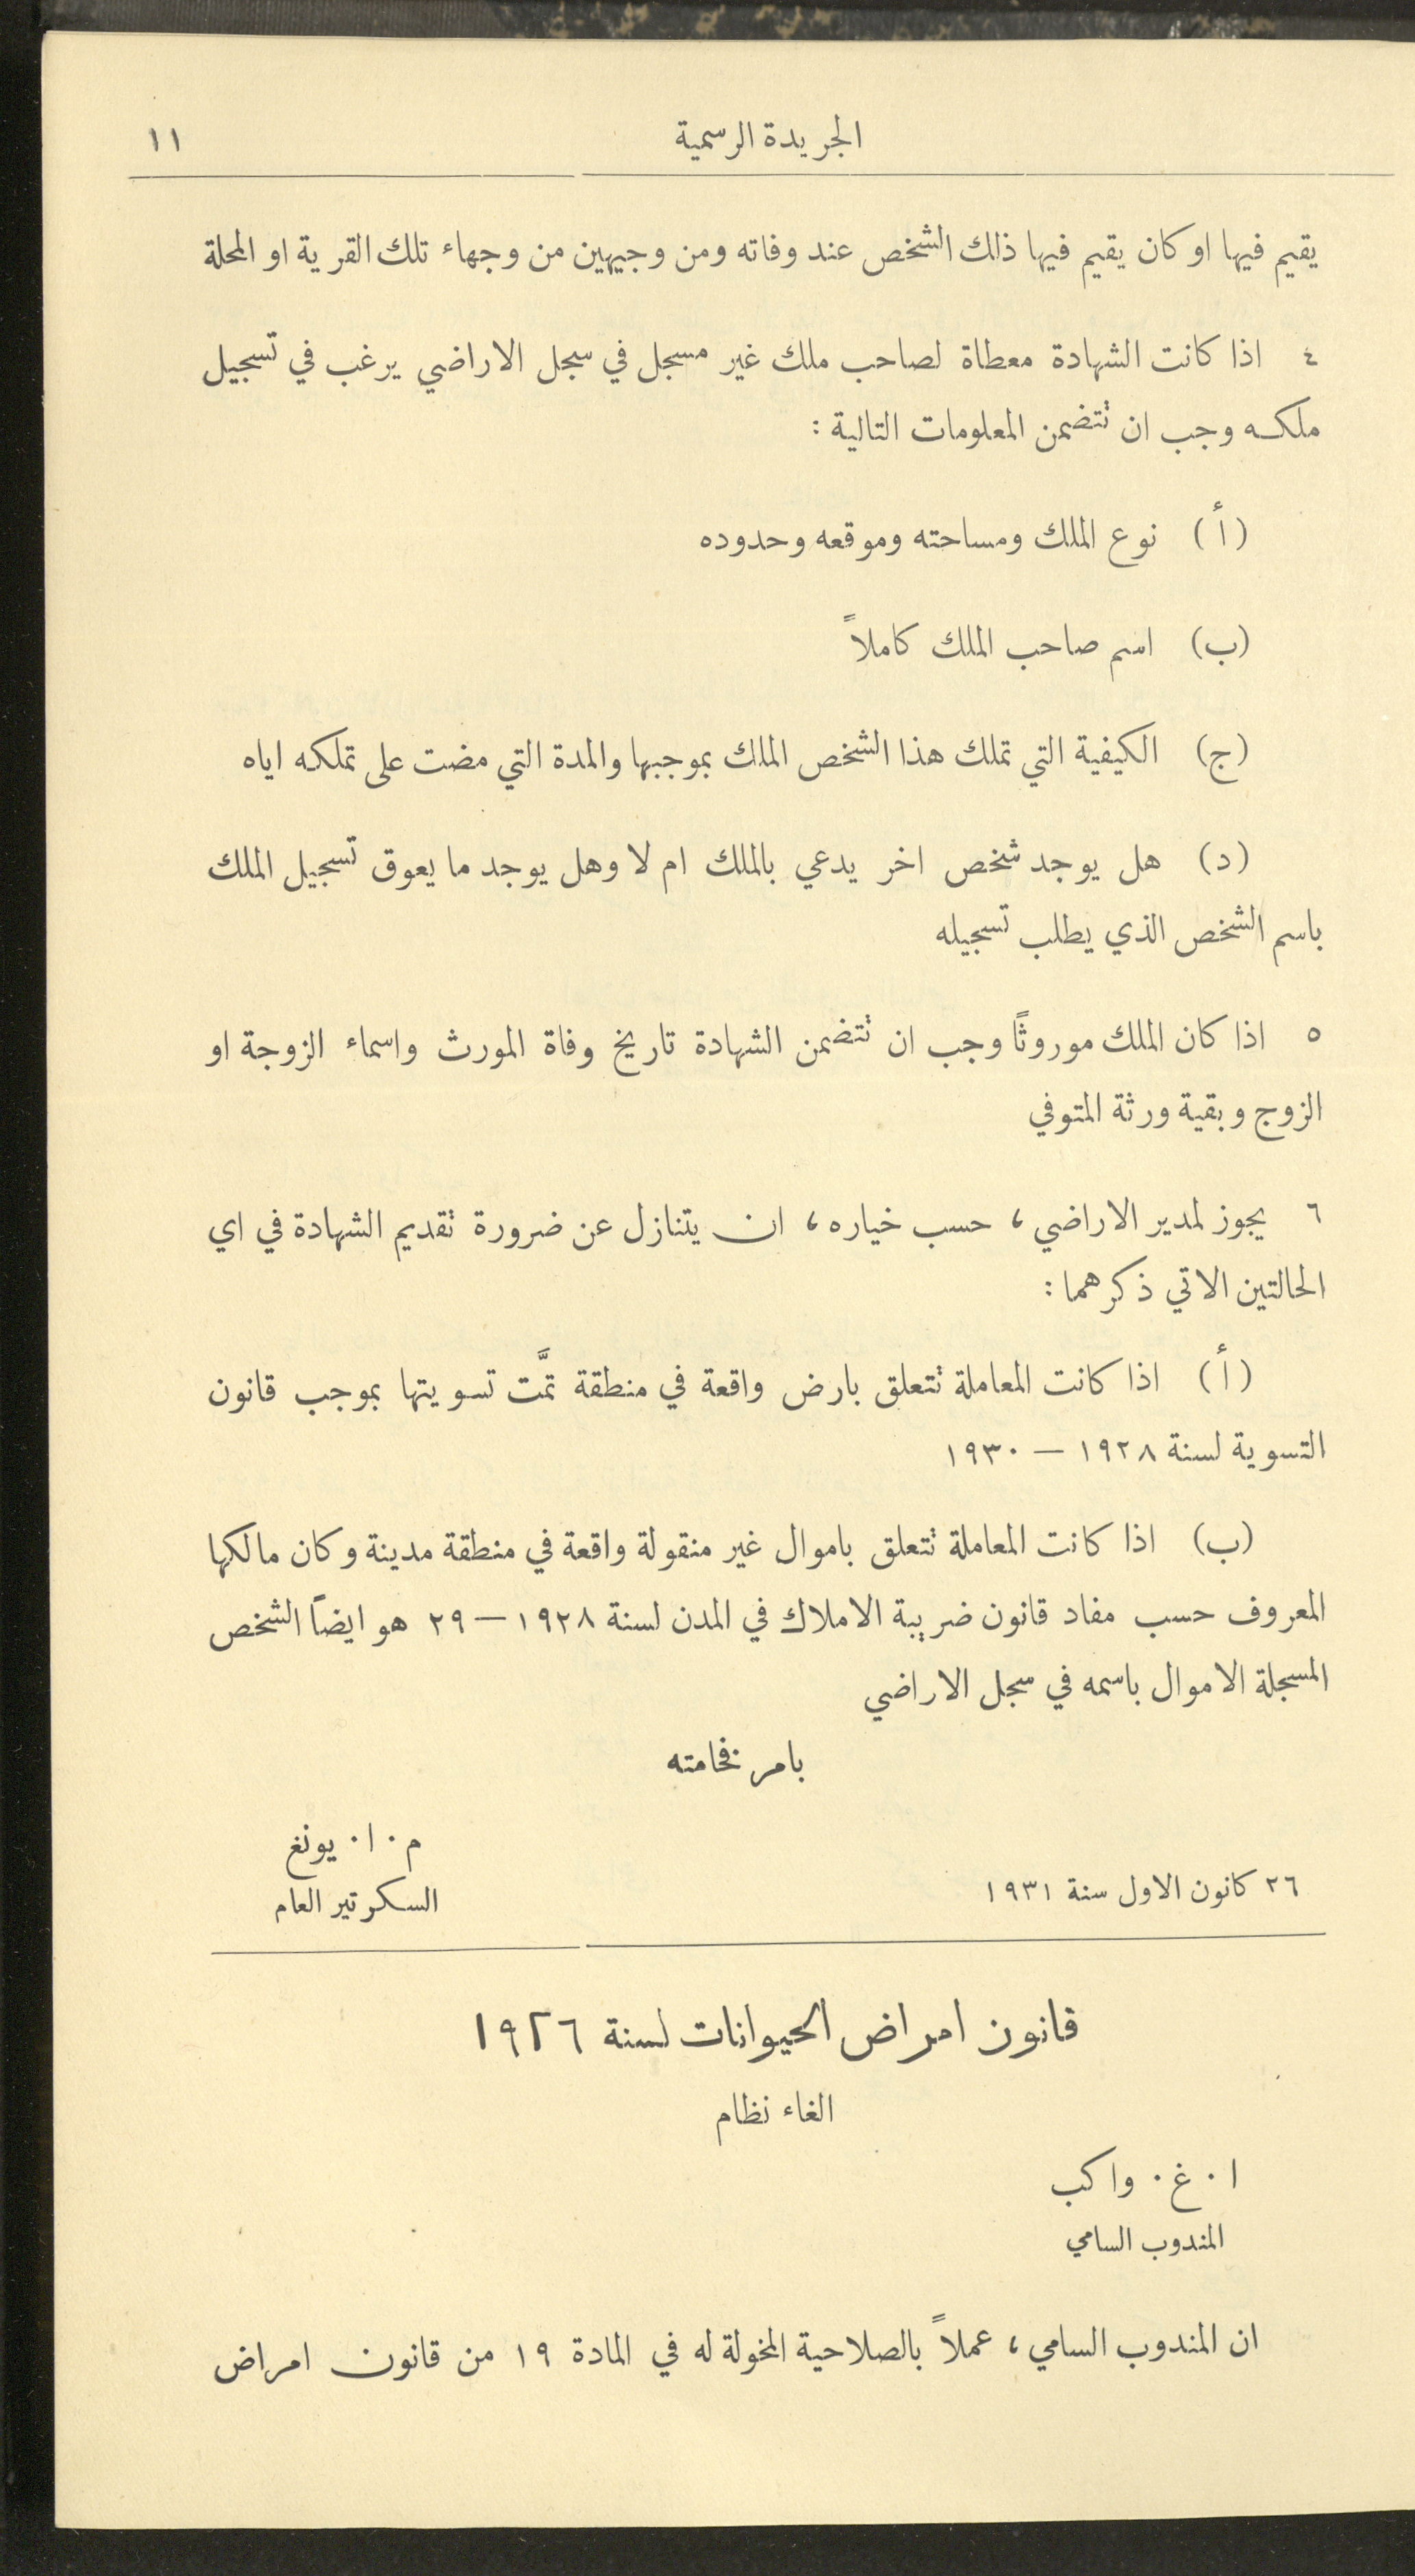 الجريدة الرسمية ١١
يقيم فيها او كان يقيم فيها ذلك الشخص عند وفاته ومن وجيهين من وجهاء تلك القرية او المحلة
٤ اذا كانت الشهادة معطاة لصاحب ملك غير مسجل في سجل الاراضي يرغب في تسجيل
ملكه وجب ان تتضمن المعلومات التالية :
(أ) نوع الملك ومساحته وموقعه وحدوده
(ب) اسم صاحب الملك كاملاً
(ج) الكيفية التي تملك هذا الشخص الملك بموجبها والمدة التي مضت على تملكه اياه
(د) هل يوجد شخص اخر يدعي بالملك ام لا وهل يوجد ما يعوق تسجيل الملك
باسم الشخص الذي يطلب تسجيله
٥ اذا كان الملك موروثاً وجب ان تتضمن الشهادة تاريخ وفاة المورث واسماء الزوجة او
الزوج وبقية ورثة المتوفي
٦ يجوز لمدير الاراضي ، حسب خياره ، ان يتنازل عن ضرورة تقديم الشهادة في اي
الحالتين الاتي ذكرهما :
(أ) اذا كانت المعاملة تتعلق بارض واقعة في منطقة تمَّت تسويتها بموجب قانون
التسوية لسنة ١٩٢٨ — ١٩٣٠
(ب) اذا كانت المعاملة تتعلق باموال غير منقولة واقعة في منطقة مدينة وكان مالكها
المعروف حسب مفاد قانون ضريبة الاملاك في المدن لسنة ١٩٢٨ — ٢٩ هو ايضاً الشخص
المسجلة الاموال باسمه في سجل الاراضي
بامر فخامته
م . ا . يونغ
٢٦ كانون الاول سنة ١٩٣١
السكرتير العام
قانون امراض الحيوانات لسنة ١٩٢٦
الغاء نظام
ا . غ . واكب
المندوب السامي
ان المندوب السامي ، عملاً بالصلاحية المخولة له في المادة ١٩ من قانون امراض